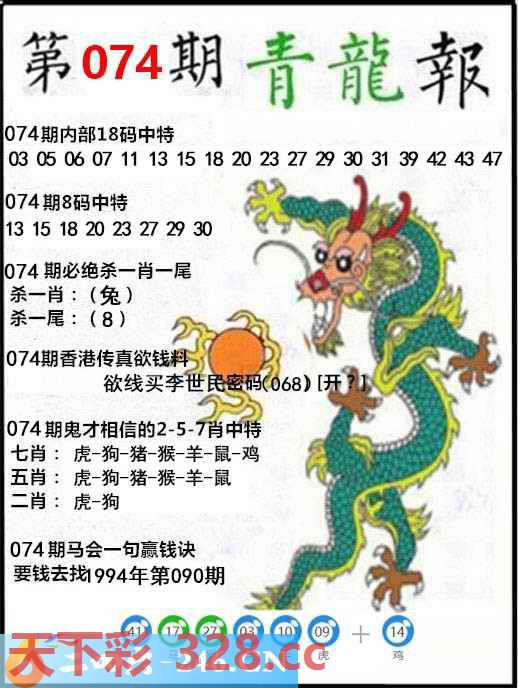 第074期青龍報
074期内部18码中特
03 05 06 07 11 13 15 18 20 23 27 29 30 31 39 42 43 47
074期8码中特
13 15 18 20 23 27 29 30
074期必绝杀一肖一尾
杀一肖：(兔)
杀一尾：(8)
074期香港传真欲钱料
欲线买李世民密码(068)[开?]
074期鬼才相信的2-5-7肖中特
七肖：虎-狗-猪-猴-羊-鼠-鸡
五肖：虎-狗-猪-猴-羊-鼠
二肖：虎-狗
074期马会一句赢钱诀
要钱去找1994年第090期
41 17 27 03 10 09 + 14
马 虎 鸡
天下彩-328.cc